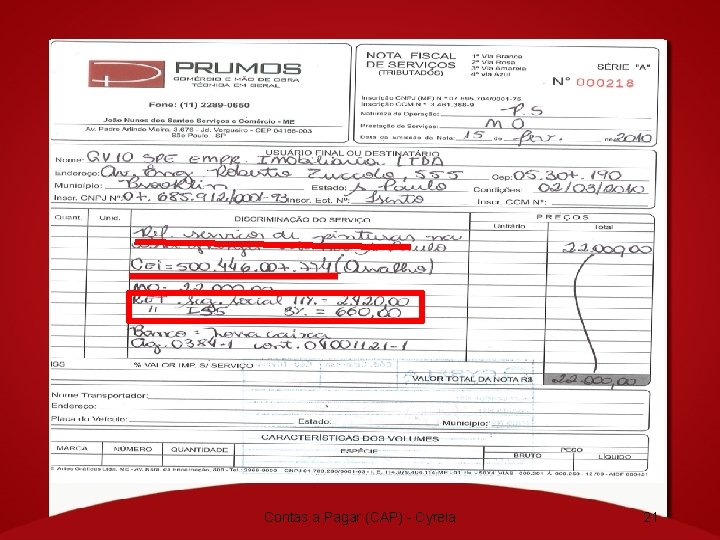 PRUMOS
COMÉRCIO E MÃO DE OBRA
TÉCNICA EM GERAL
Fone: (11) 2289-0660
João Nunes dos Santos Serviços e Comércio - ME
Av. Padre Arlindo Vieira, 3.676 - Jd. Vergueiro - CEP 04166-003
São Paulo SP
NOTA FISCAL
DE SERVIÇOS
(TRIBUTADOS)
1ª Via Branco
2ª Via Rosa
3ª Via Amarela
4ª via Azul
SÉRIE "A"
Nº 000218
Inscrição CNPJ (MF) Nº 07.895.704/0001-76
Inscrição CCM Nº 3.461.368-9
Natureza da Operação: P.S
Prestação de Serviços: MO
Data da Emissão da Nota: 15 de fev. de 2010
USUÁRIO FINAL OU DESTINATÁRIO
Nome: QV10 SPE Empr. Imobiliário LTDA
Endereço: Av. Eng. Roberto Zuccolo, 555 Cep: 05.307.190
Município: Brooklin Estado: S. Paulo Condições: 02/03/2010
Inscr. CNPJ Nº: 07.685.912/0001-93 Inscr. Est. Nº: Isento Inscr. CCM Nº:
Quant. Unid. DISCRIMINAÇÃO DO SERVIÇO PREÇOS
Unitário Total
Ref. serviços de pinturas na
Paulo 22.000,00
CEI = 500.446.007.774 (Orvalho)
MO = 22.000,00
RET. Seg. social 11% = 2420,00
" ISS 3% = 660,00
Banco = nossa caixa
Ag. 0384-1 cont. 04001121-1
% VALOR IMP. S/ SERVIÇO
VALOR TOTAL DA NOTA R$ 22.000,00
Nome Transportador:
Endereço:
Placa do Veículo: Estado: Município:
CARACTERÍSTICAS DOS VOLUMES
MARCA NÚMERO QUANTIDADE ESPÉCIE PESO
BRUTO LÍQUIDO
Contas a Pagar (CAP) - Cyrela
21